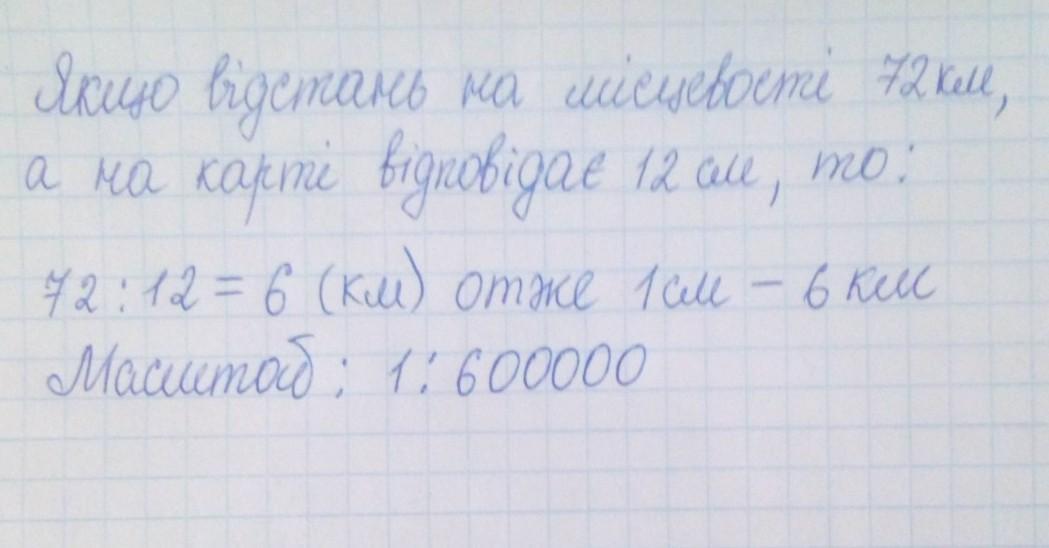 Якщо відстань на місцевості 72км,
а на карті відповідає 12 см, то:
72 : 12 = 6 (км) отже 1см – 6 км
Масштаб : 1 : 600000